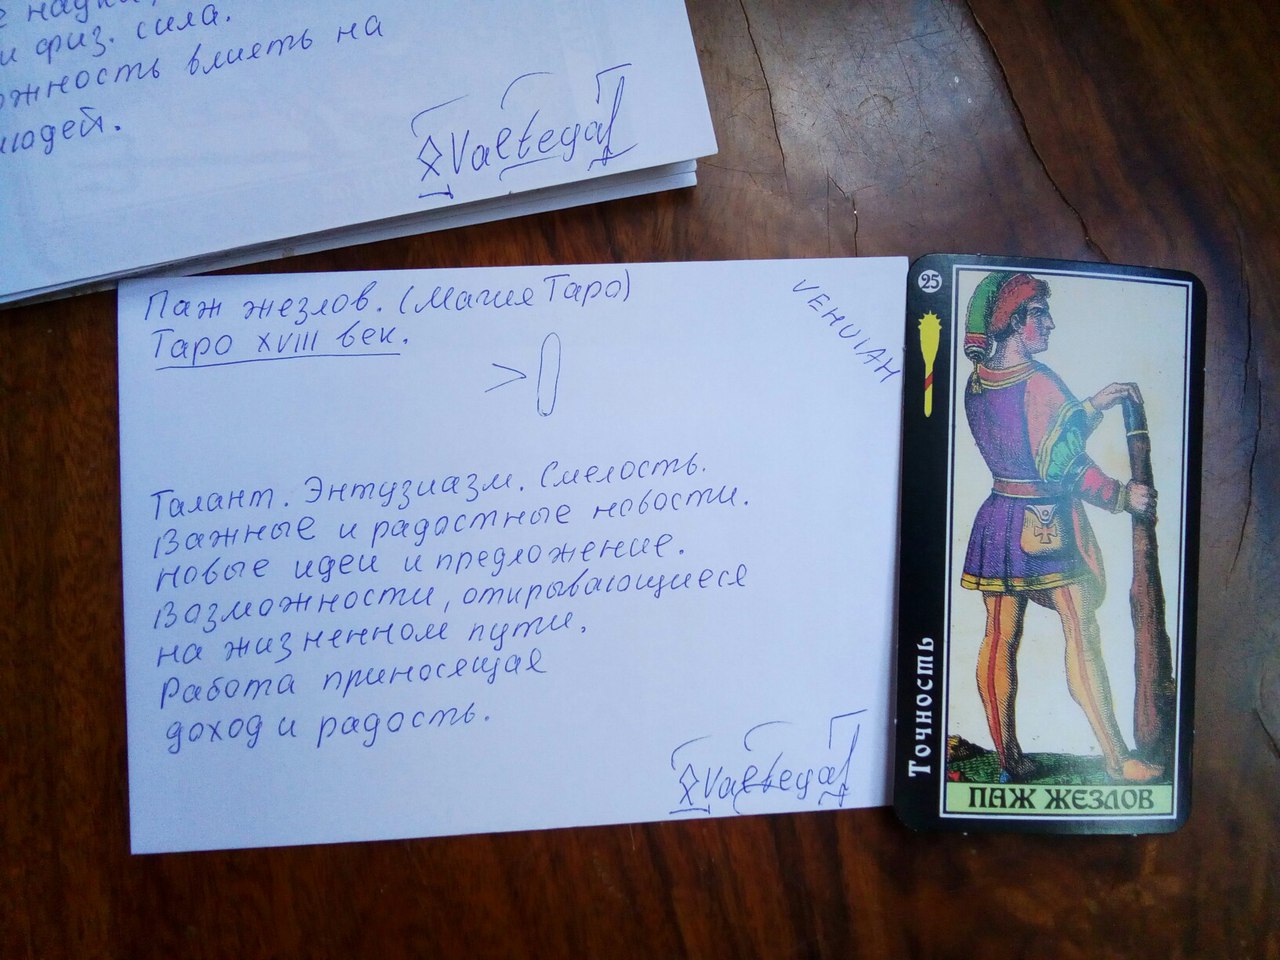 е науки,
и физ. сила.
ожность влиять на
людей.
Valtegal
Паж жезлов. (Магия Таро)
Таро XVIII век.
VEHUIAH
Талант. Энтузиазм. Смелость.
Важные и радостные новости.
Новые идеи и предложение.
Возможности, открывающиеся
на жизненном пути.
Работа приносящая
доход и радость.
Valtegal
25
Точность
ПАЖ ЖЕЗЛОВ